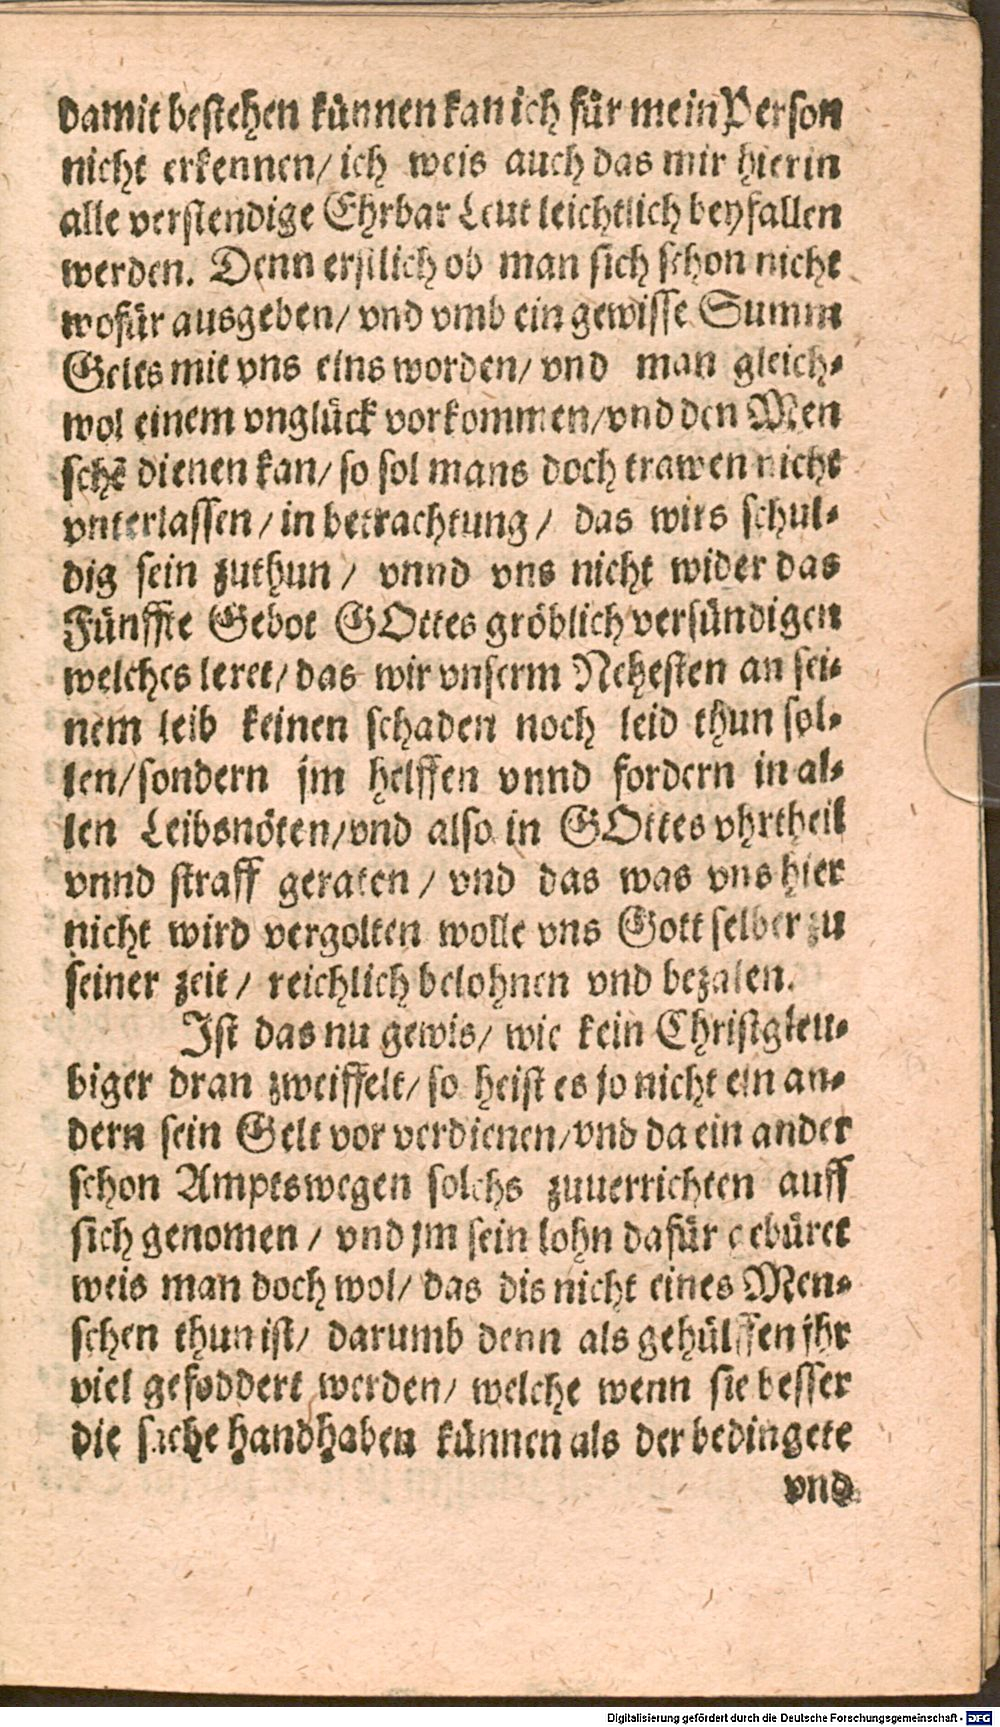 damit bestehen künnen kan ich für mein Person
nicht erkennen/ ich weis auch das mir hierin
alle verstendige Ehrbar Leut leichtlich beyfallen
werden. Denn erstlich ob man sich schon nicht
wofür ausgeben/ vnd vmb ein gewisse Summ
Gelts mit vns eins worden/ vnd man gleich-
wol einem vnglück vorkommen/vnd den Men
schē dienen kan/ so sol mans doch trawen nicht
vnterlassen/ in betrachtung/ das wirs schul-
dig sein zuthun/ vnnd vns nicht wider das
Fünffte Gebot GOttes gröblich versündigen
welches leret/ das wir vnserm Nehesten an sei-
nem leib keinen schaden noch leid thun sol-
len/sondern jm helffen vnnd fordern in al-
len Leibsnöten/vnd also in GOttes vhrtheil
vnnd straff geraten/ vnd das was vns hier
nicht wird vergolten wolle vns Gott selber zu
seiner zeit/ reichlich belohnen vnd bezalen.
Ist das nu gewis/ wie kein Christgleu-
biger dran zweiffelt/ so heist es jo nicht ein an-
dern sein Gelt vor verdienen/vnd da ein ander
schon Amptswegen solchs zuuerrichten auff
sich genomen/ vnd jm sein lohn dafür gebüret
weis man doch wol/ das dis nicht eines Men-
schen thun ist/ darumb denn als gehülffen jhr
viel gefoddert werden/ welche wenn sie besser
die sache handhaben künnen als der bedingete
vnd
Digitalisierung gefördert durch die Deutsche Forschungsgemeinschaft - DFG